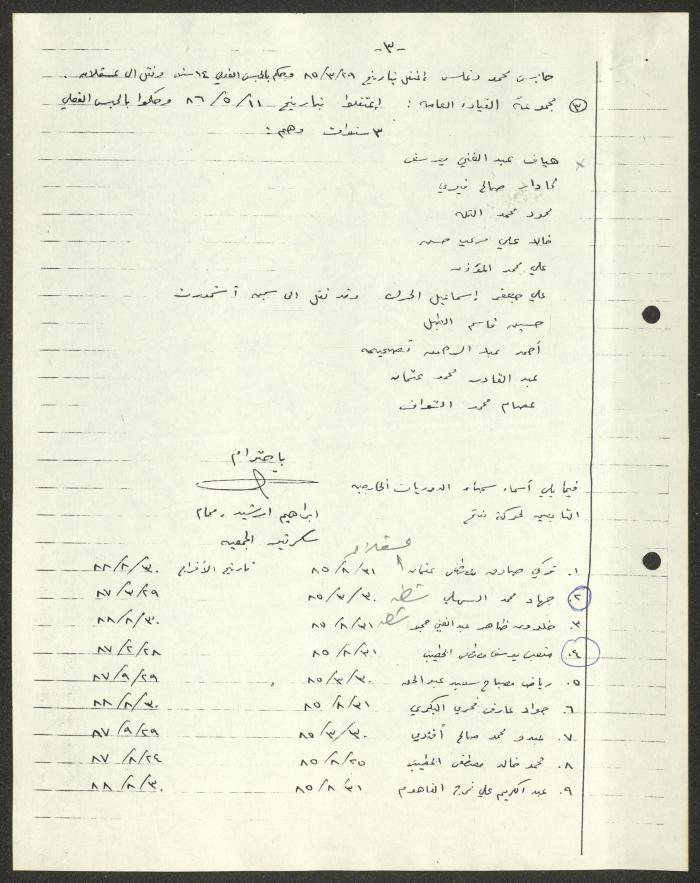 -٣-
حابس محمد دغلس اعتقل بتاريخ ٨٥/٣/٢٩ وحكم بالحبس الفعلي ١٤ سنة ونقل الى عسقلان .
③ مجموعة القيادة العامة : اعتقلوا بتاريخ ٨٦/٥/١١ وحكموا بالحبس الفعلي
٣ سنوات وهم :
× هياف عبد الغني يوسف
صالح خيري
محمود محمد التله
خالد علي مرعي حسن
علي محمد المؤذن
علي جعفر إسماعيل الحرك وقد نقل الى سجن أشمورت
حسين قاسم الطبل
أحمد عبد الرحمن
عبد القادر محمد عثمان
عصام محمد الشواف
باحترام
فيما يلي أسماء سجناء الدوريات الخارجية
ابراهيم ارشيد
التابعين لحركة فتح
سكرتير الجمعية
عسقلان
١. تركي صادق مصطفى عثمان ٨٥/٨/٣١ تاريخ الأفراج ٨٨/٨/٣٠
٢. جهاد محمد السهلي شطه ٨٥/٣/٣٠ ٨٧/٣/٢٩
٣. خلدون ظاهر عبد الغني شطه ٨٥/٨/٣١ ٨٨/٨/٣٠
٤. يوسف مصطفى الخطيب ٨٥/٨/٣١ ٨٧/٢/٢٨
٥. رياض مصباح سعيد عبد الحق ٨٥/٣/٣٠ ٨٧/٩/٢٩
٦. جواد عارف فخري البكري ٨٥/٨/٣١ ٨٨/٨/٣٠
٧. عبدو محمد صالح أفندي ٨٥/٣/٣٠ ٨٧/٩/٢٩
٨. محمد خالد مصطفى الخطيب ٨٥/٨/٢٥ ٨٧/٨/٢٤
٩. عبد الكريم علي فرج القاهوم ٨٥/٨/٣١ ٨٨/٨/٣٠